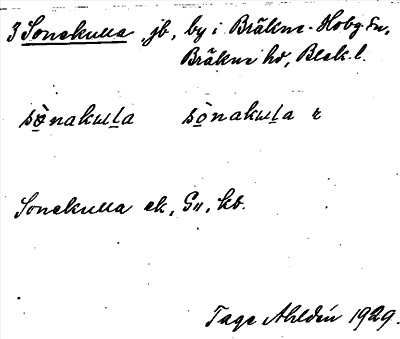 3 Sonekulla jb, by i Bräkne-Hoby sn,
Bräkne hd, Blek. l.
sònakulla sònakulla r
Sonekulla ek, Gs, kb.
Tage Ahldén 1929.